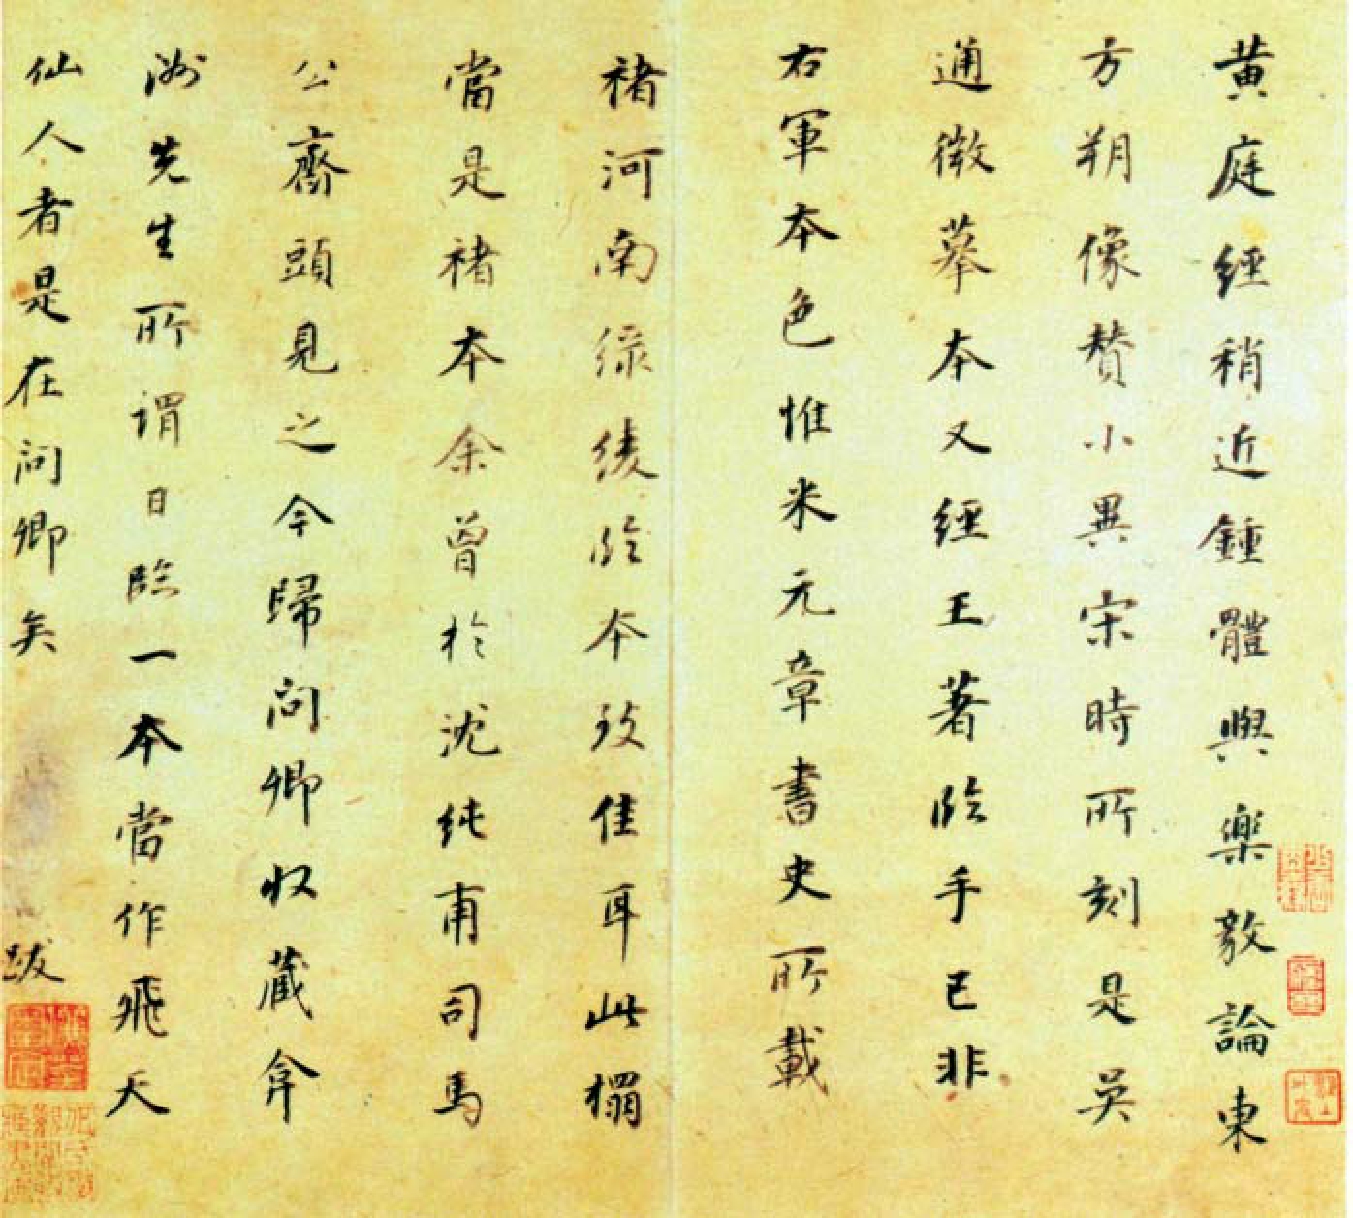 黄庭經稍近鍾體與樂毅論東
方朔像贊小異宋時所刻是吳
通微摹本又經王著臨手已非
右軍本色惟米元章書史所載
褚河南綠綾臨本致佳耳此搨
當是褚本余曾於沈純甫司馬
公齋頭見之今歸問卿收藏弇
洲先生所謂日臨一本當作飛天
仙人者是在問卿矣 跋